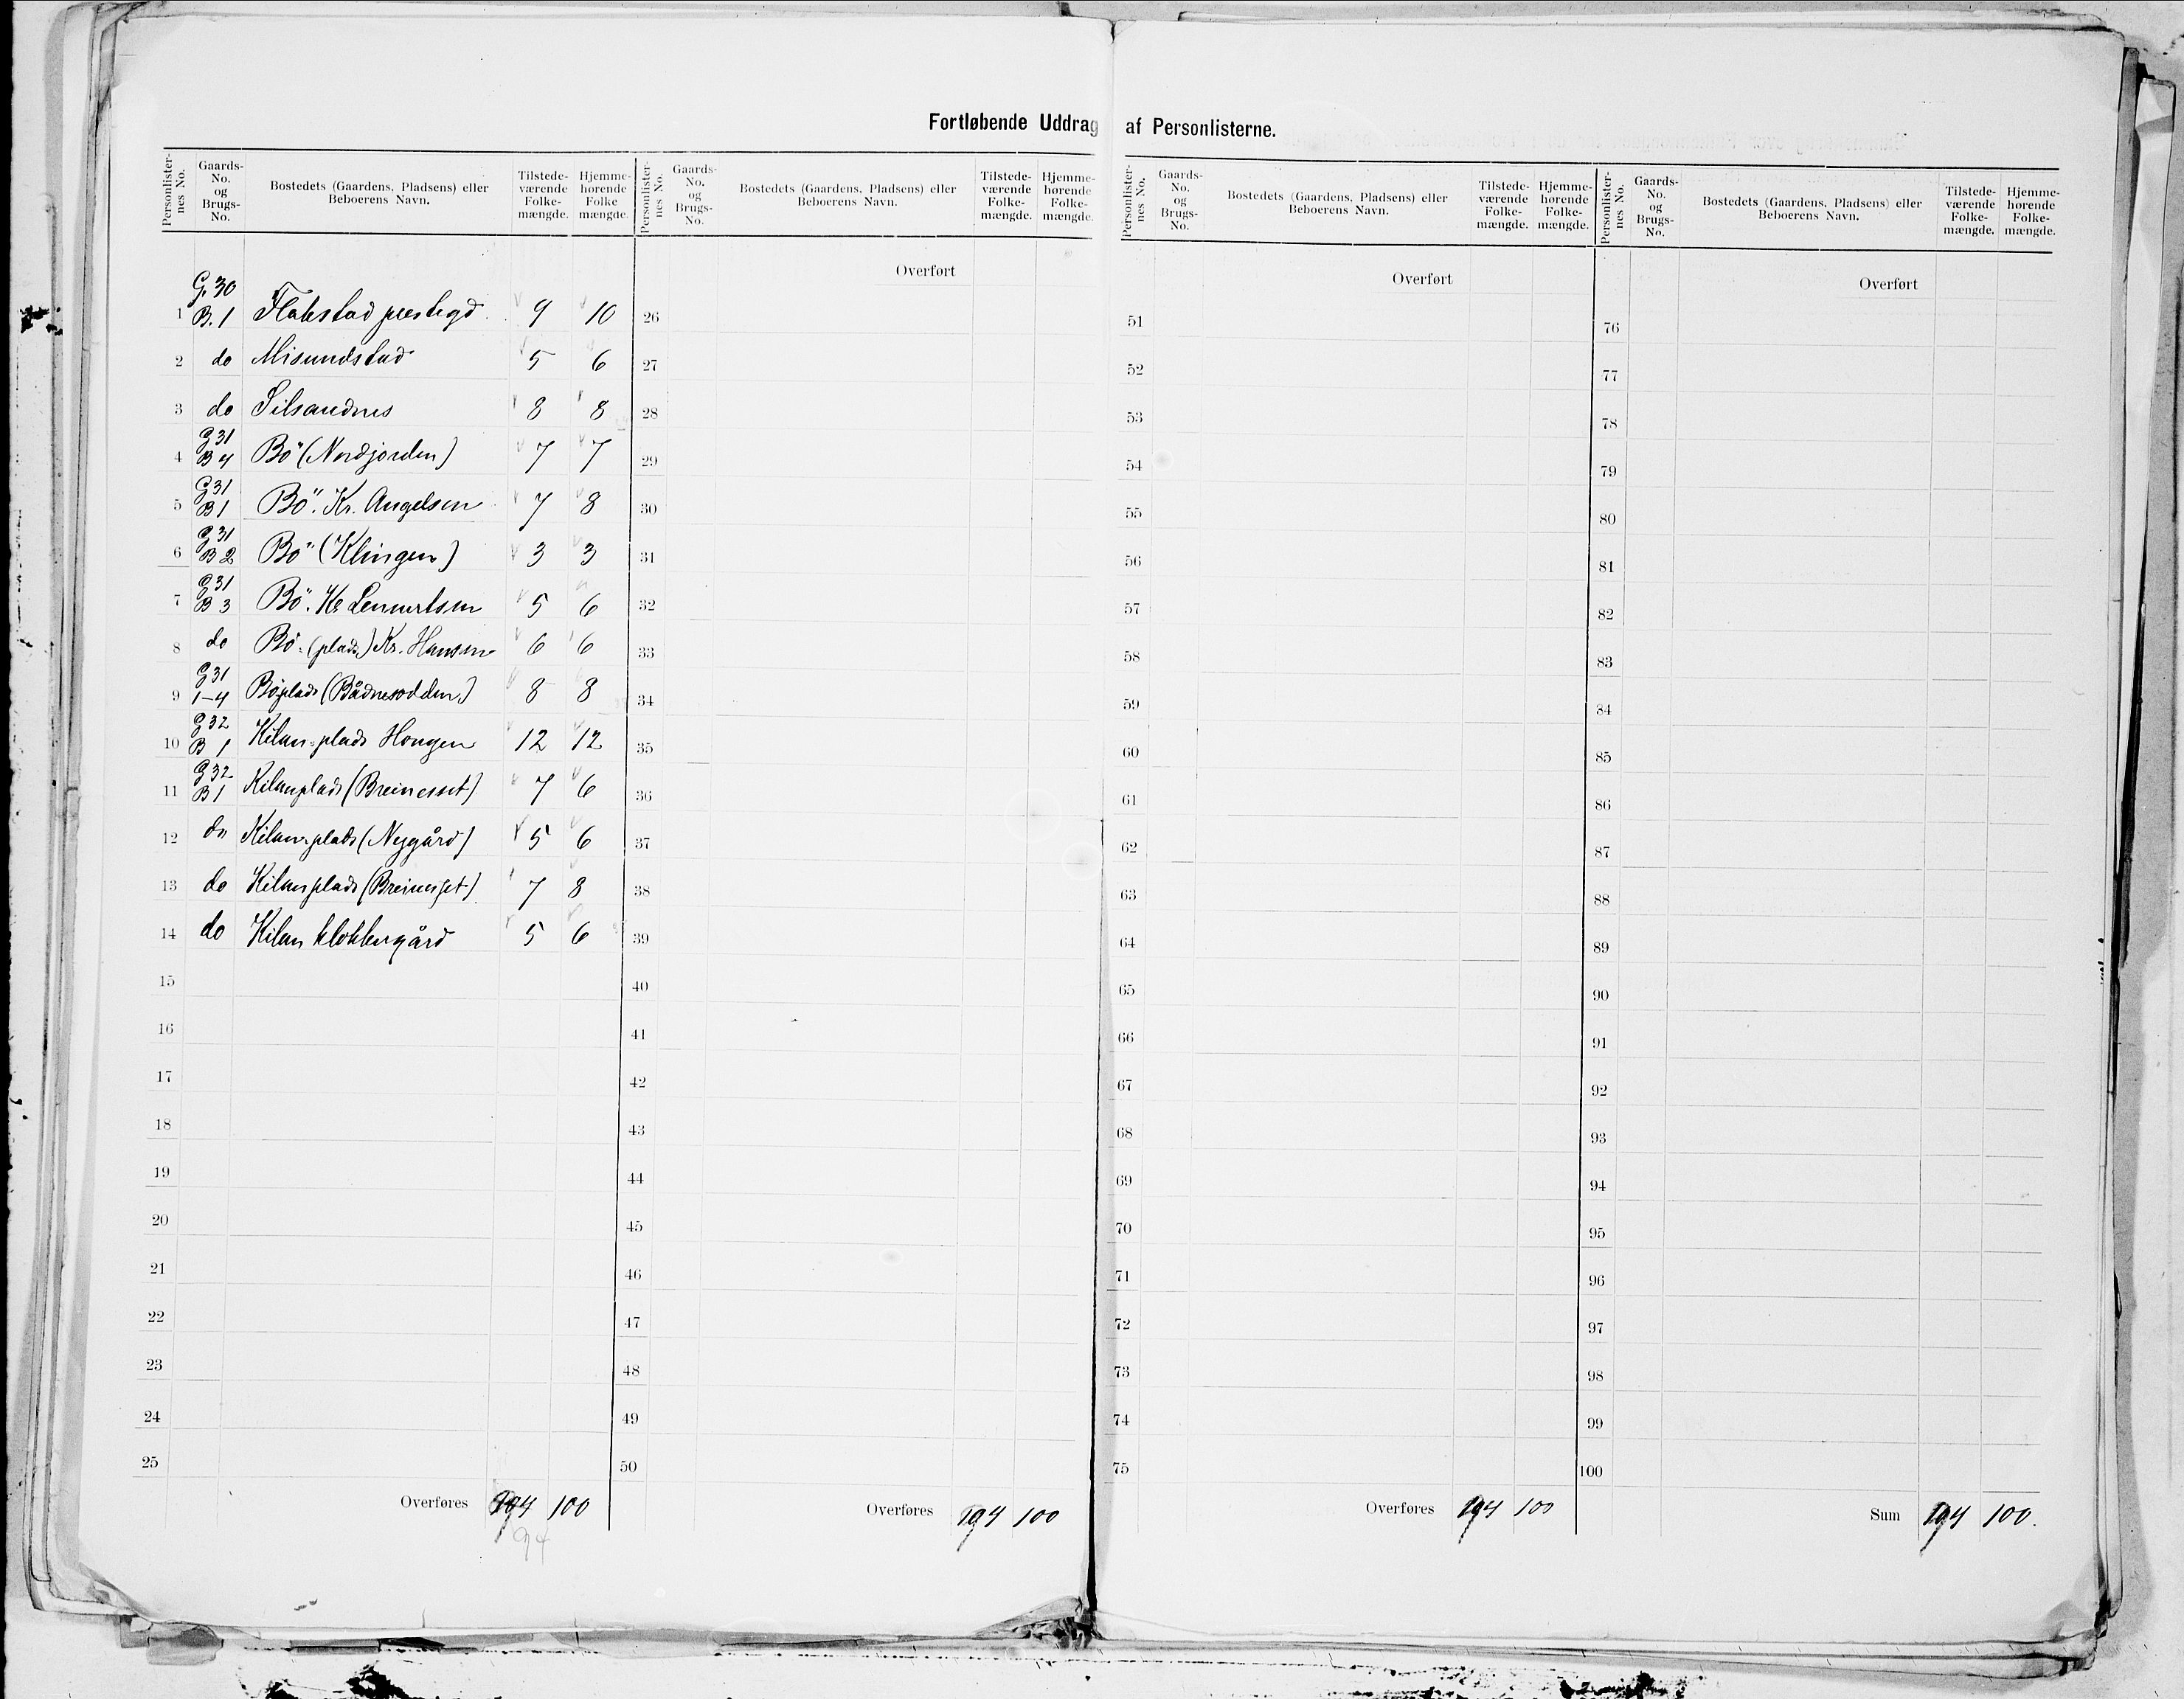 Fortløbende Uddrag af Personlisterne.
Personlister-nes No. Gaards-No. og Brugs-No. Bostedets (Gaardens, Pladsens) eller Beboerens Navn. Tilstede-værende Folke-mængde. Hjemme-hørende Folke mængde.
G. 30
1 B. 1 Flakstad prestegd. 9 10
2 do Misundstad 5 6
3 do Silsandnes 8 8
G 31
4 B 4 Bö (Nordjorden) 7 7
G 31
5 B 1 Bö". Kr. Angelsen 7 8
G 31
6 B 2 Bö" (Klingen) 3 3
G 31
7 B 3 Bö". Kr Lennertsen 5 6
8 do Bö: (plads) Kr. Hansen 6 6
G 31
9 1-4 Böplads (Bådnesodden) 8 8
G 32
10 B 1 Kilan-plads Hougen 12 12
G 32
11 B 1 Kilanplads (Breinesset) 7 6
12 do Kilan-plads (Nygård) 5 6
13 do Kilanplads (Breinesset) 7 8
14 do Kilan klokkergård 5 6
15
16
17
18
19
20
21
22
23
24
25
Overføres 194 100
94
Personlister-nes No. Gaards-No. og Brugs-No. Bostedets (Gaardens, Pladsens) eller Beboerens Navn. Tilstede-værende Folke-mængde. Hjemme-hørende Folke-mængde.
Overført
26
27
28
29
30
31
32
33
34
35
36
37
38
39
40
41
42
43
44
45
46
47
48
49
50
Overføres 194 100
Personlister-nes No. Gaards-No. og Brugs-No. Bostedets (Gaardens, Pladsens) eller Beboerens Navn. Tilstede-værende Folke-mængde. Hjemme-hørende Folke-mængde.
Overført
51
52
53
54
55
56
57
58
59
60
61
62
63
64
65
66
67
68
69
70
71
72
73
74
75
Overføres 194 100
Personlister-nes No. Gaards-No. og Brugs-No. Bostedets (Gaardens, Pladsens) eller Beboerens Navn. Tilstede-værende Folke-mængde. Hjemme-hørende Folke-mængde.
Overført
76
77
78
79
80
81
82
83
84
85
86
87
88
89
90
91
92
93
94
95
96
97
98
99
100
Sum 194 100.